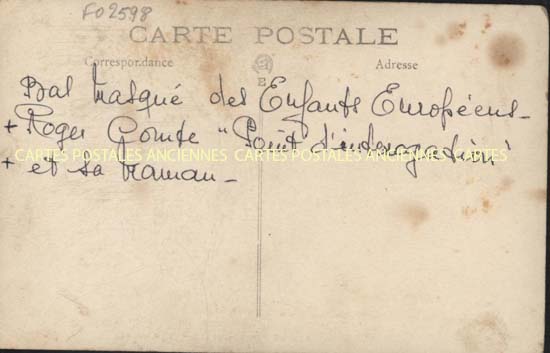 FO2598
CARTE POSTALE
Correspondance
Adresse
E
Bal Masqué des Enfants Européens -
+ Roger Comte "Point d'interrogation"
CARTES POSTALES ANCIENNES CARTES POSTALES ANCIENNES CARTES
+ et sa maman -